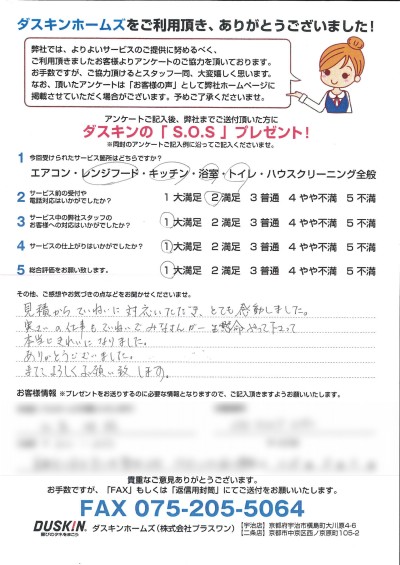 ダスキンホームズをご利用頂き、ありがとうございました！
弊社では、よりよいサービスのご提供に努めるべく、
ご利用頂きましたお客様よりアンケートのご協力を頂いております。
お手数ですが、ご協力頂けるとスタッフ一同、大変嬉しく思います。
なお、頂いたアンケートは「お客様の声」として弊社ホームページに
掲載させていただく場合がございます。予めご了承くださいませ。
アンケートご記入後、弊社までご送付頂いた方に
ダスキンの「S.O.S」プレゼント！
※同封のアンケートご記入例に沿ってご記入くださいませ。
1 今回受けられたサービス箇所はどちらですか？
エアコン・レンジフード・キッチン・浴室・トイレ・ハウスクリーニング全般
2 サービス前の受付や電話対応はいかがでしたか？ 1 大満足 2 満足 3 普通 4 やや不満 5 不満
3 サービス中の弊社スタッフのお客様への対応はいかがでしたか？ 1 大満足 2 満足 3 普通 4 やや不満 5 不満
4 サービスの仕上がりはいかがでしたか？ 1 大満足 2 満足 3 普通 4 やや不満 5 不満
5 総合評価をお願い致します。 1 大満足 2 満足 3 普通 4 やや不満 5 不満
その他、ご感想やお気づきの点などをお聞かせくださいませ。
見積からていねいに対応いただき、とても感動しました。
実さいの仕事もていねいでみなさんが一生懸命やって下さって
本当にきれいになりました。
ありがとうございました。
またよろしくお願い致します。
お客様情報 ※プレゼントをお送りするのに必要な情報となりますので、ご記入頂きますようお願いします。
貴重なご意見ありがとうございます。
お手数ですが、「FAX」もしくは「返信用封筒」にてご送付をお願いいたします。
FAX 075-205-5064
DUSKIN
喜びのタネをまこう
ダスキンホームズ（株式会社プラスワン）
【宇治店】京都府宇治市槇島町大川原4-6
【二条店】京都市中京区西ノ京原町105-2